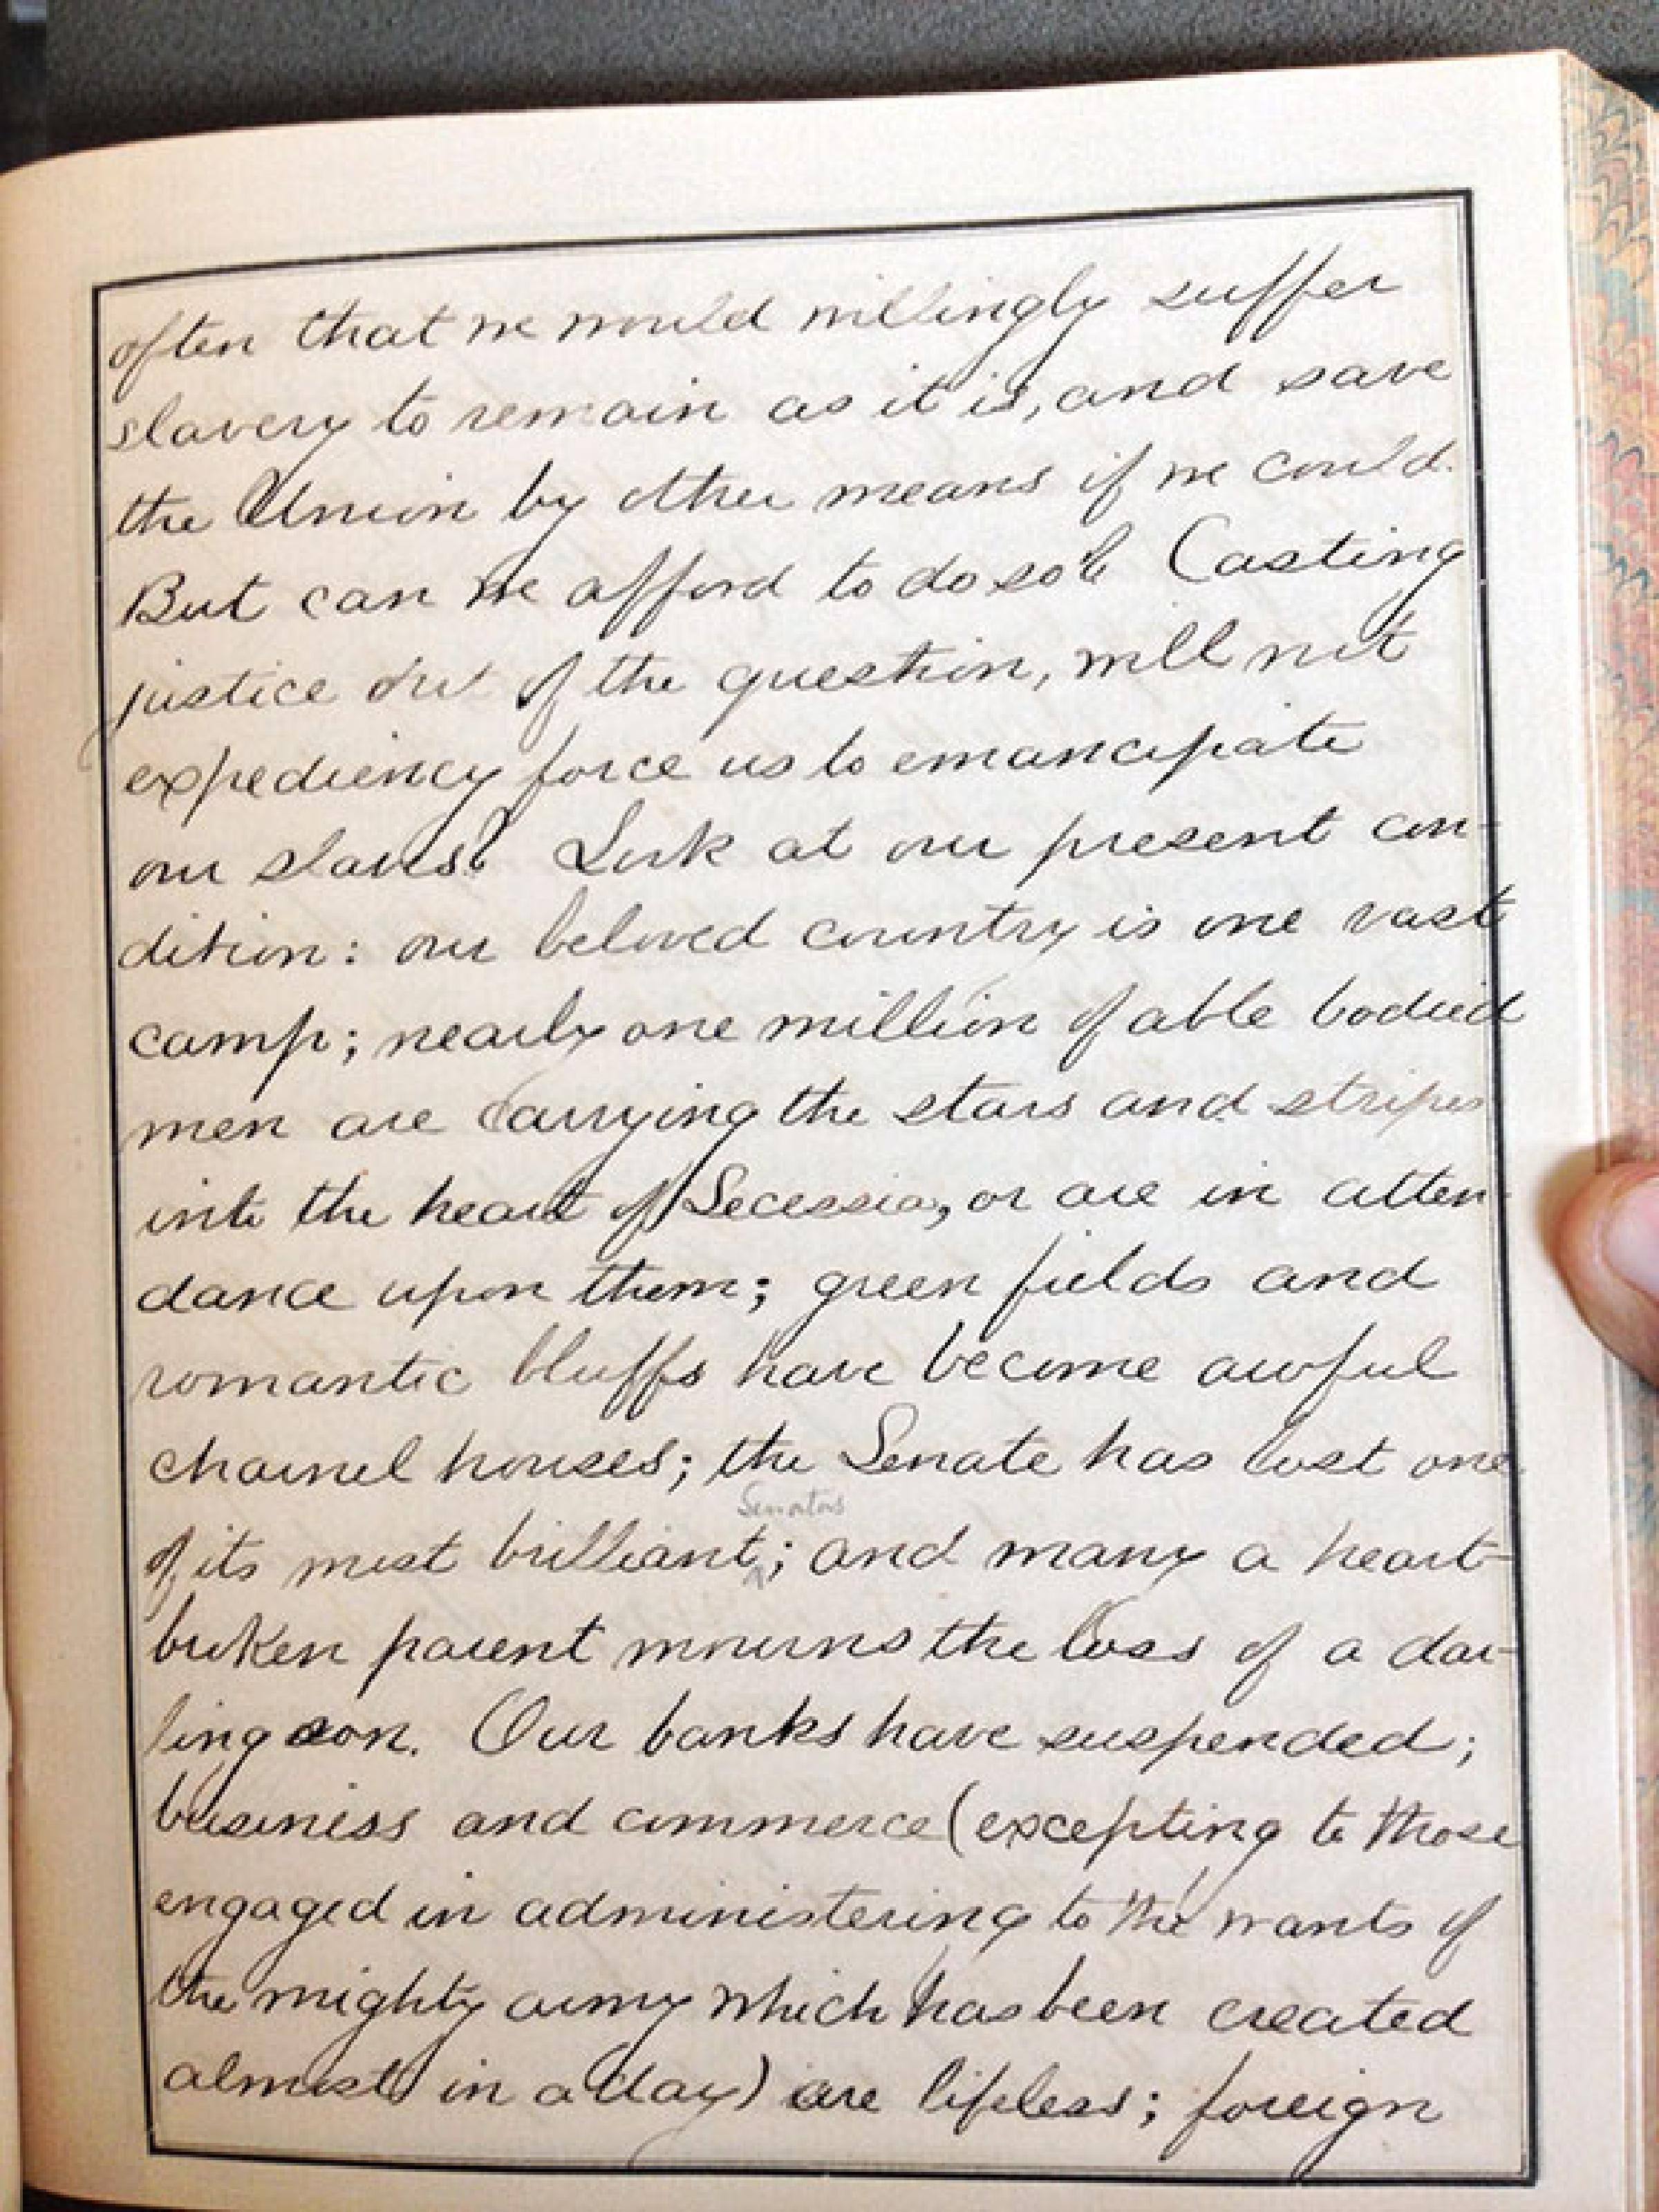 often that we would willingly suffer
slavery to remain as it is, and save
the Union by other means if we could.
But can we afford to do so? Casting
justice out of the question, will not
expediency force us to emancipate
our slaves? Look at our present con-
dition: our beloved country is one vast
camp; nearly one million of able bodied
men are carrying the stars and stripes
into the heart of Secessia, or are in atten-
dance upon them; green fields and
romantic bluffs have become awful
charnel houses; the Senate has lost one
Senators
of its most brilliant; and many a heart-
broken parent mourns the loss of a dar-
ling son. Our banks have suspended;
business and commerce (excepting to those
engaged in administering to the wants of
the mighty army which has been created
almost in a day) are lifeless; foreign